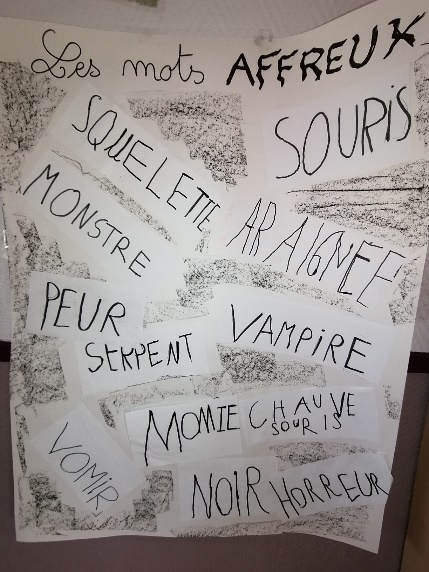 Les mots AFFREUX
SQUELETTE
SOURIS
MONSTRE
ARAIGNÉE
PEUR
VAMPIRE
SERPENT
MOMIE
CHAUVE
SOURIS
VOMIR
NOIR
HORREUR